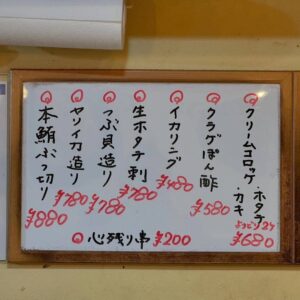 ◎クリームコロッケ
・ホタテ
・カキ
よりどり2ケ
¥680
◎クラゲぽん酢
¥580
◎イカリング
¥480
◎生ホタテ刺
¥780
◎つぶ貝造り
¥780
◎ヤリイカ造り
¥780
◎本鮪ぶつ切り
¥880
◎心残り串 ¥200